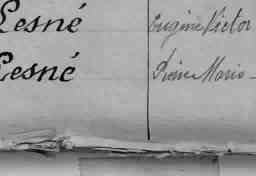 Lesné Eugène Victor
Lesné Marie